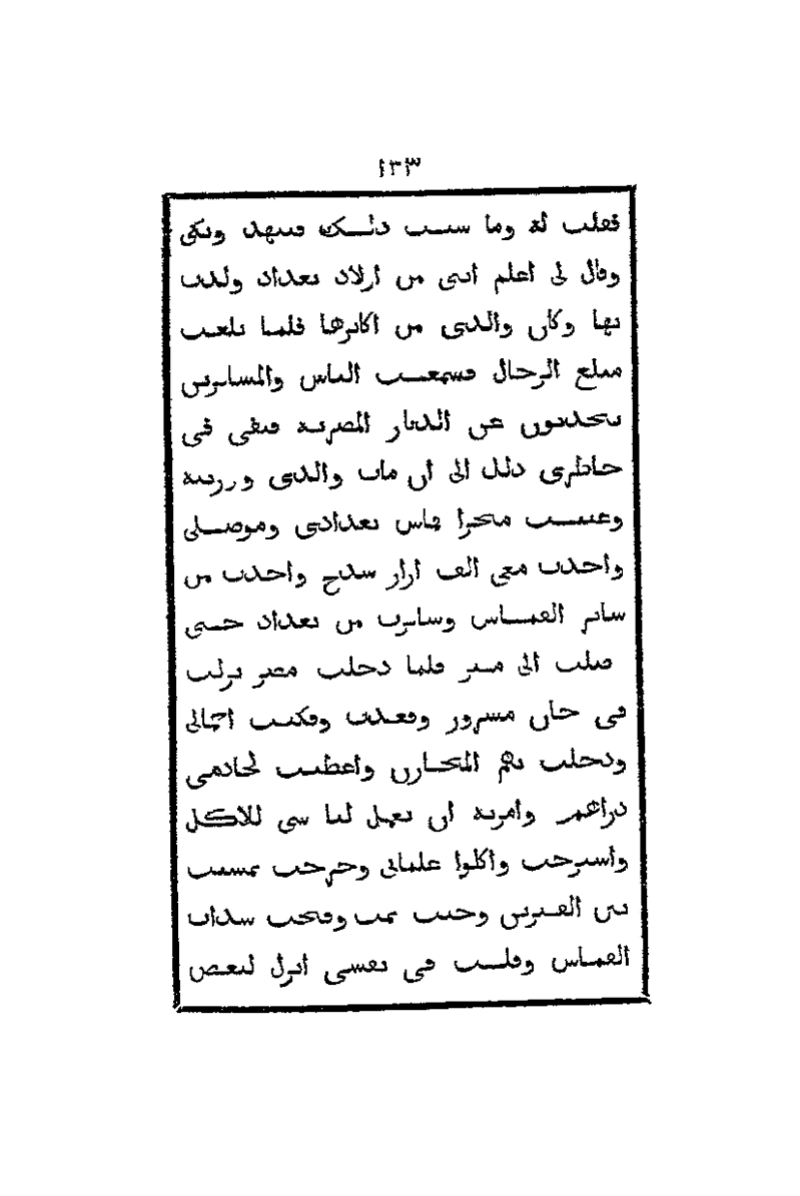 ١٣٣
فقلت له وما سبب ذلك فتنهد وبكى
وقال لى اعلم اننى من اولاد بغداد ولدت
بها وكان والدى من اكابرها فلما بلغت
مبلغ الرجال فسمعت الناس والمسافرين
يتحدثون عن الديار المصرية فبقى فى
خاطرى ذلك الى ان مات والدى وورثته
وعبيت متجرا قماش بغدادى وموصلى
واخذت معى الف ازار سدج واخذت من
ساير القماش وسافرت من بغداد حتى
صلت الى مصر فلما دخلت مصر نزلت
فى خان مسرور وقعدت وفكيت احمالى
ودخلت بهم المخازن واعطيت لخادمى
دراهم وامرته ان يعمل لنا شى للاكل
واسترحت واكلوا غلمانى وخرجت تمشيت
بين القصرين وجيت نمت وفتحت شدات
القماش وقلت فى نفسى انزل لبعض